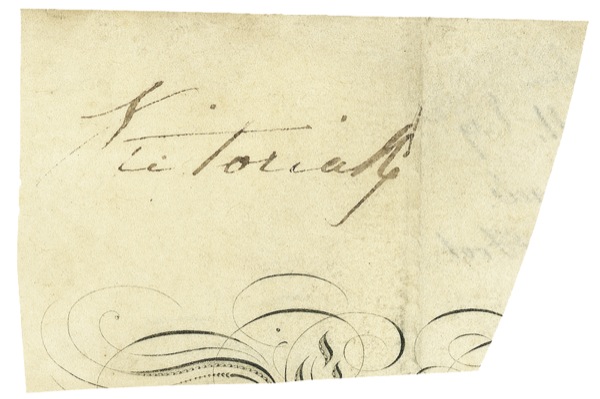 Victoria R